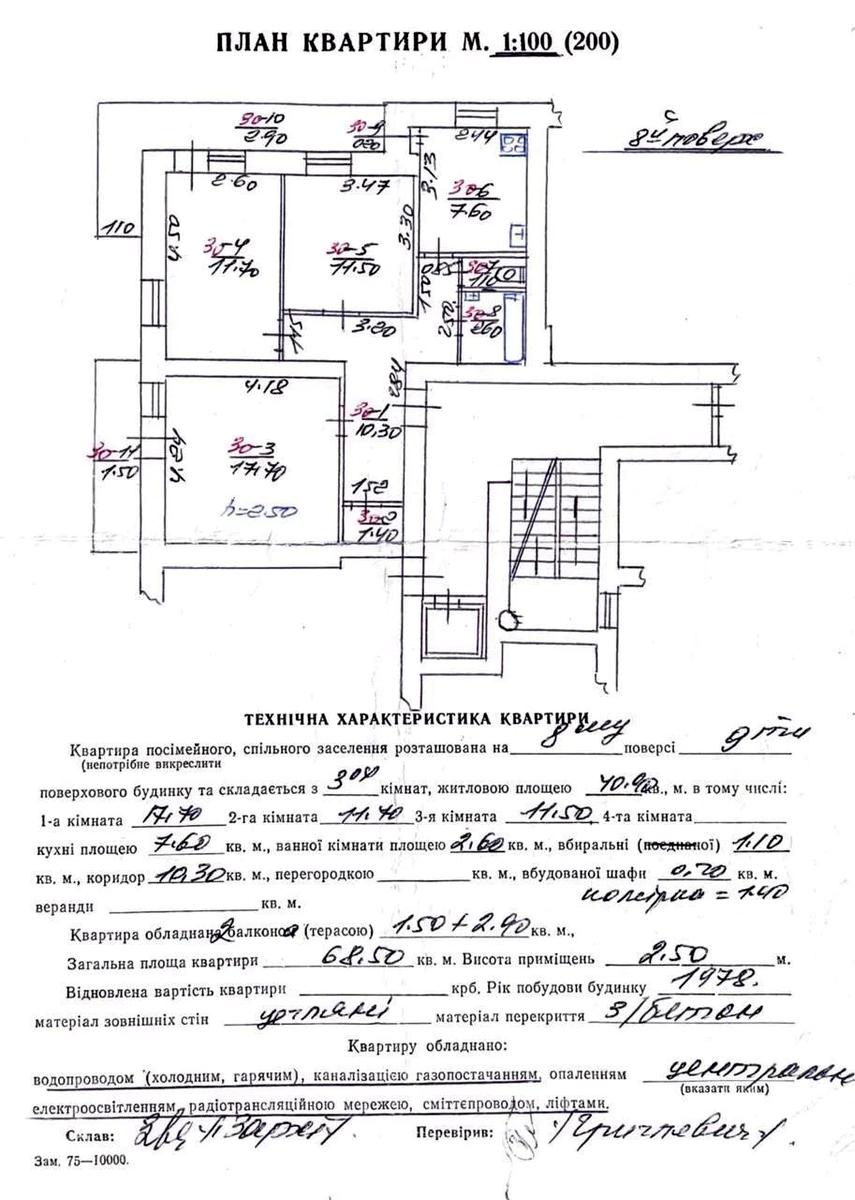 ПЛАН КВАРТИРИ М. 1:100 (200)
8й поверх
30-10
2.90
30-9
0.20
2.44
2.60
3.47
3.13
30-6
7.60
1.10
4.50
30-4
11.70
30-5
11.50
3.30
0.85
30-7
1.10
1.50
2.50
30-8
2.60
1.15
3.20
4.18
2.84
30-1
10.30
30-11
1.50
4.24
30-3
17.70
h=2.50
1.52
30-2
1.40
ТЕХНІЧНА ХАРАКТЕРИСТИКА КВАРТИРИ
Квартира посімейного, спільного заселення розташована на 8му поверсі 9ти
(непотрібне викреслити
поверхового будинку та складається з 3ох кімнат, житловою площею 40.90 кв., м. в тому числі:
1-а кімната 17.70 2-га кімната 11.70 3-я кімната 11.50 4-та кімната
кухні площею 7.60 кв. м., ванної кімнати площею 2.60 кв. м., вбиральні (поєднаної) 1.10
кв. м., коридор 10.30 кв. м., перегородкою кв. м., вбудованої шафи 0.20 кв. м.
веранди кв. м. комірка = 1.40
Квартира обладнана 2 балконом (терасою) 1.50 + 2.90 кв. м.,
Загальна площа квартири 68.50 кв. м. Висота приміщень 2.50 м.
Відновлена вартість квартири крб. Рік побудови будинку 1978.
матеріал зовнішніх стін цегляні матеріал перекриття з/бетон
Квартиру обладнано:
водопроводом (холодним, гарячим), каналізацією газопостачанням, опаленням централь
(вказати яким)
електроосвітленням, радіотрансляційною мережею, сміттєпроводом, ліфтами.
Склав: Перевірив:
Зам. 75—10000.